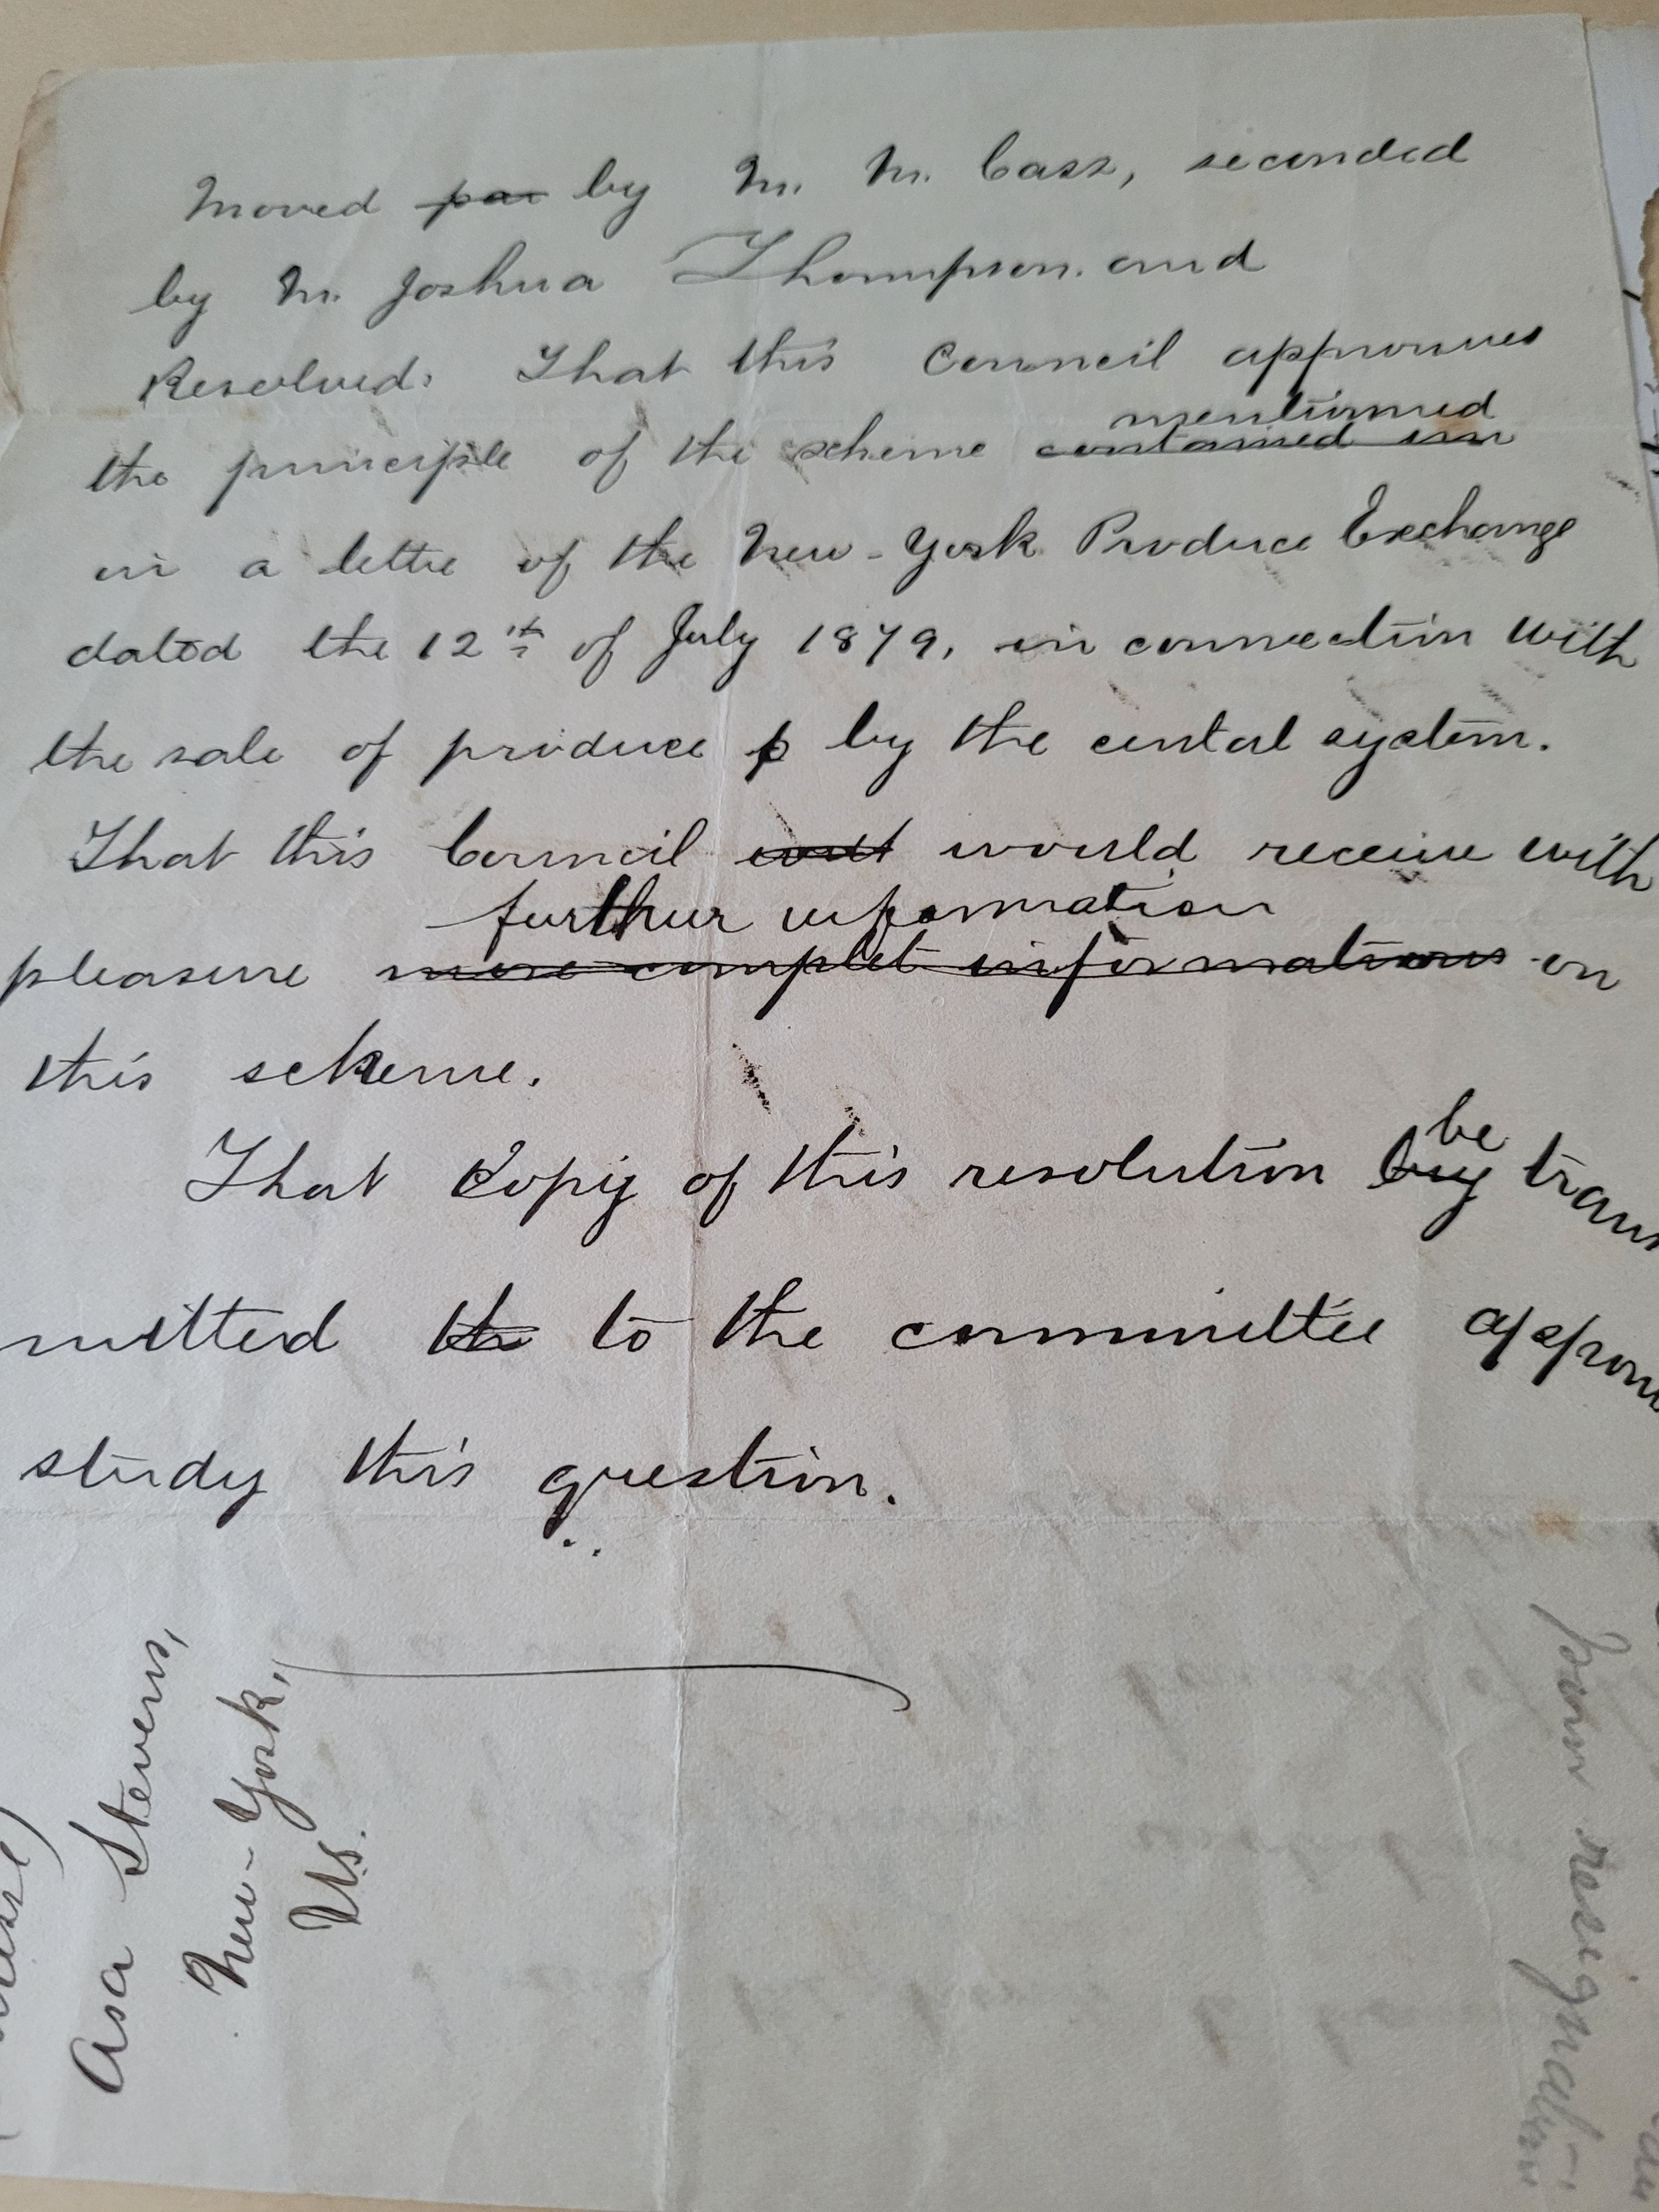 Moved par by M. M. Cass, seconded
by M. Joshua Thompson. and
Resolved: That this Council approuves
mentionned
the principle of the scheme contained inn
in a letter of the New-York Produce Exchange
dated the 12th of July 1879, in connection with
the sale of produce p by the cental system.
That this Council would receive with
further information
pleasure more complet informations on
this scheme.
be
That Copy of this resolution by trans
mitted the to the committee
study this question.
Asa Stevens,
New-York,
U.S.